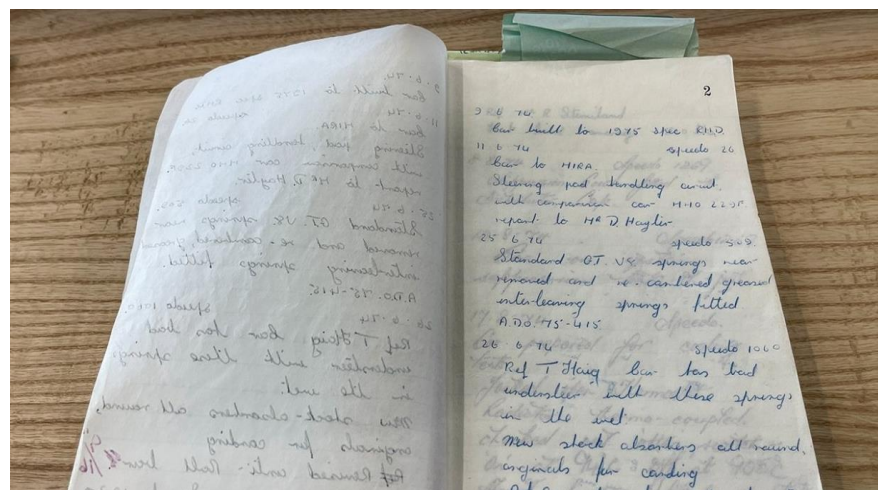 2
9 6 74
Car built to 1975 spec RHD
11 6 74 speedo 26
Car to MIRA
Steering pad handling circuit.
with comparison car HHO 229F
report to Mr D. Hayter
25 6 74 speedo 509
Standard GT. V8 springs rear
removed and re-cambered greased
inter-leaving springs fitted
A.D.O. 75-415
26 6 74 speedo 1060
Ref T Haig Car has bad
understeer with these springs
in the wet
New shock absorbers all round.
originals for carding